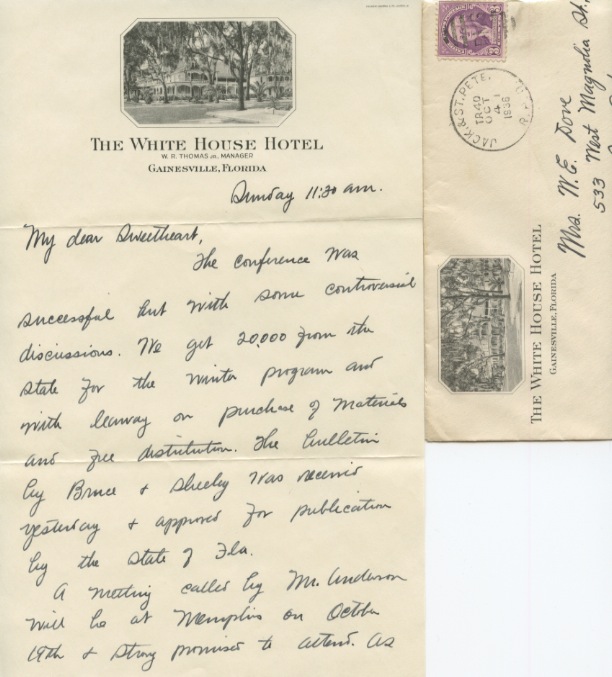 THE WHITE HOUSE HOTEL
W. R. THOMAS JR., MANAGER
GAINESVILLE, FLORIDA
Sunday 11:30 am.
My dear Sweetheart,
The conference was
successful but with some controversial
discussions. We get 20,000 from the
State for the winter program and
with leaway on purchase of materials
and free distribution. The bulletin
by Bruce & Sheeley was received
yesterday & approved for publication
by the State of Fla.
A meeting called by Mr. Anderson
will be at Memphis on October
19th & Strong promised to attend. As
JACK. & ST. PETE.
TR 40
OCT
4
1936
R.P.O.
Mrs. W. E. Dove
533 West Magnolia St.,
THE WHITE HOUSE HOTEL
GAINESVILLE, FLORIDA